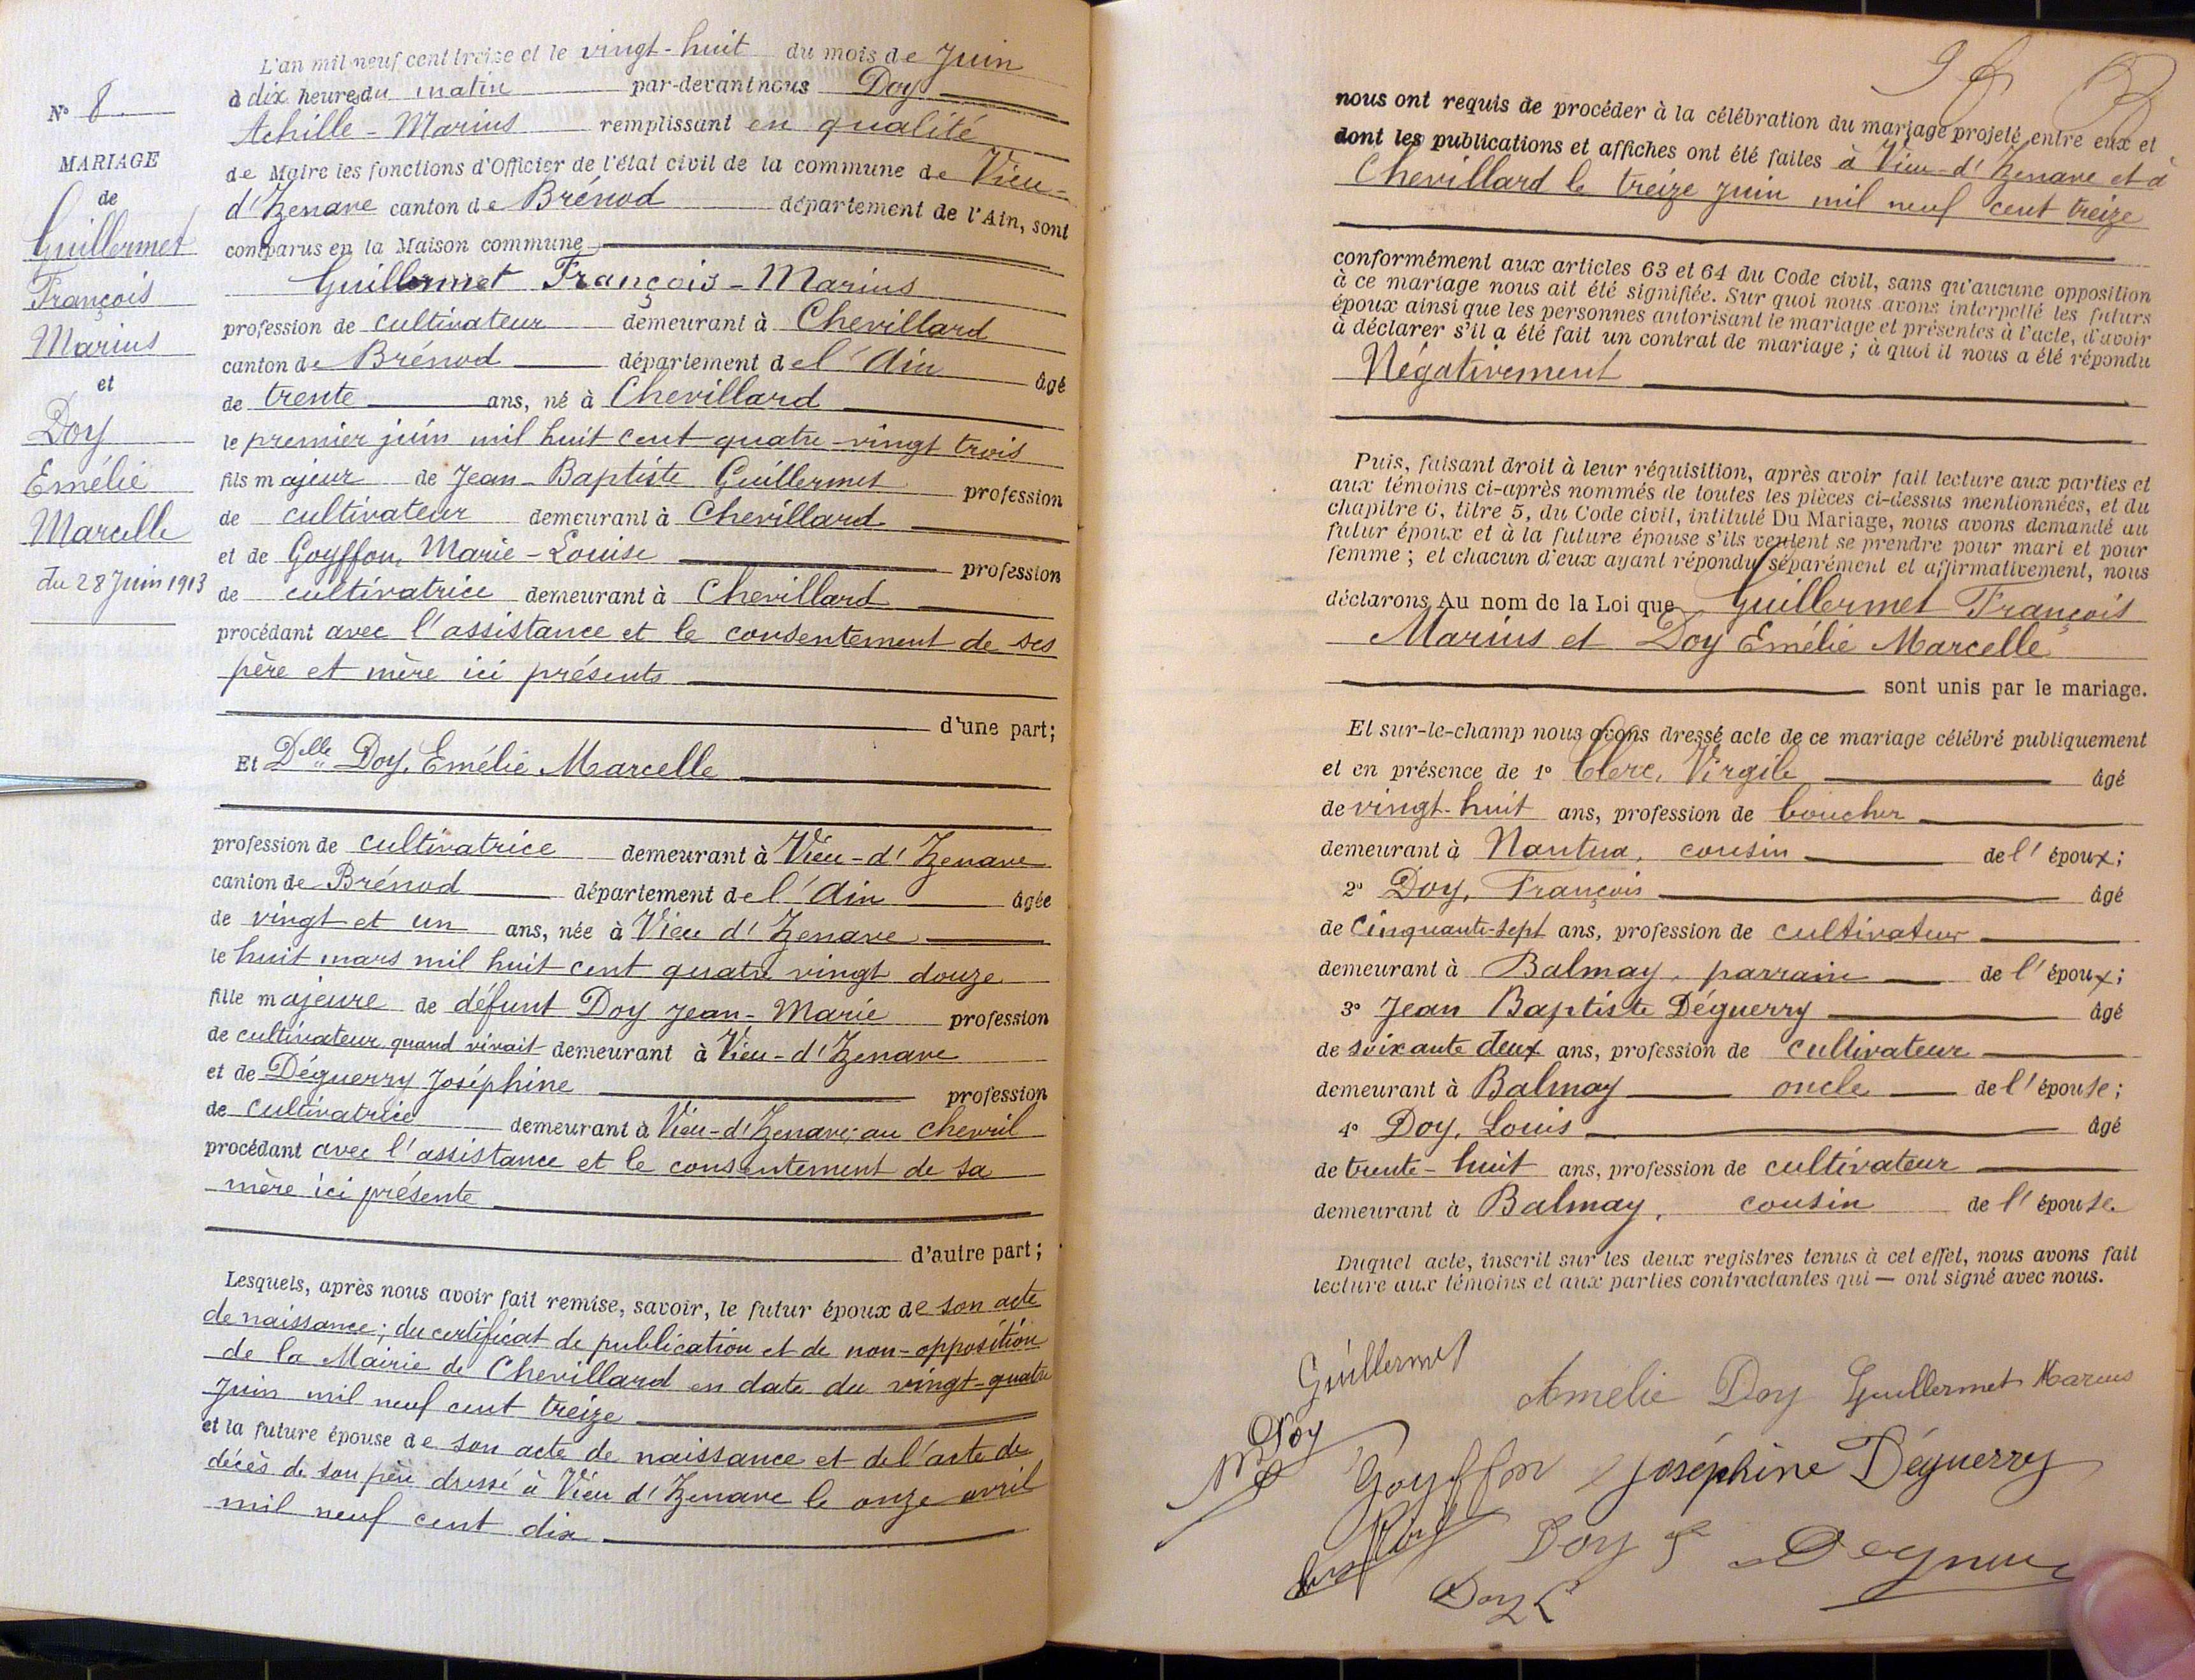 N° 8
MARIAGE
de
Guillermet
François
Marius
et
Doy
Emélie
Marcelle
du 28 Juin 1913
L'an mil neuf cent treize et le vingt-huit du mois de Juin
à dix heures du matin par-devant nous Doy
Achille-Marius remplissant en qualité
de Maire les fonctions d'Officier de l'état civil de la commune de Vieu-
d'Izenave canton de Brénod département de l'Ain, sont
comparus en la Maison commune
Guillermet François-Marius
profession de cultivateur demeurant à Chevillard
canton de Brénod département de l'Ain âgé
de trente ans, né à Chevillard
le premier juin mil huit cent quatre-vingt trois
fils majeur de Jean-Baptiste Guillermet profession
de cultivateur demeurant à Chevillard
et de Goyffon, Marie-Louise profession
de cultivatrice demeurant à Chevillard
procédant avec l'assistance et le consentement de ses
père et mère ici présents
d'une part;
Et Delle Doy, Emélie Marcelle
profession de cultivatrice demeurant à Vieu-d'Izenave
canton de Brénod département de l'Ain âgée
de vingt et un ans, née à Vieu d'Izenave
le huit mars mil huit cent quatre vingt douze
fille majeure de défunt Doy Jean-Marie profession
de cultivateur quand vivait demeurant à Vieu-d'Izenave
et de Déguerry Joséphine profession
de cultivatrice demeurant à Vieu-d'Izenave, au Chevril
procédant avec l'assistance et le consentement de sa
mère ici présente
d'autre part;
Lesquels, après nous avoir fait remise, savoir, le futur époux de son acte
de naissance; du certificat de publication et de non-opposition
de la Mairie de Chevillard en date du vingt-quatre
Juin mil neuf cent treize
et la future épouse de son acte de naissance et de l'acte de
décès de son père dressé à Vieu d'Izenave le onze avril
mil neuf cent dix
nous ont requis de procéder à la célébration du mariage projeté entre eux et
dont les publications et affiches ont été faites à Vieu-d'Izenave et à
Chevillard le treize juin mil neuf cent treize
conformément aux articles 63 et 64 du Code civil, sans qu'aucune opposition
à ce mariage nous ait été signifiée. Sur quoi nous avons interpellé les futurs
époux ainsi que les personnes autorisant le mariage et présentes à l'acte, d'avoir
à déclarer s'il a été fait un contrat de mariage; à quoi il nous a été répondu
Négativement
Puis, faisant droit à leur réquisition, après avoir fait lecture aux parties et
aux témoins ci-après nommés de toutes les pièces ci-dessus mentionnées, et du
chapitre 6, titre 5, du Code civil, intitulé Du Mariage, nous avons demandé au
futur époux et à la future épouse s'ils veulent se prendre pour mari et pour
femme; et chacun d'eux ayant répondu séparément et affirmativement, nous
déclarons Au nom de la Loi que Guillermet François
Marius et Doy Emélie Marcelle
sont unis par le mariage.
Et sur-le-champ nous avons dressé acte de ce mariage célébré publiquement
et en présence de 1° Clerc, Virgile âgé
de vingt-huit ans, profession de boucher
demeurant à Nantua, cousin de l'époux;
2° Doy, François âgé
de cinquante-sept ans, profession de cultivateur
demeurant à Balmay, parrain de l'époux;
3° Jean Baptiste Déguerry âgé
de soixante deux ans, profession de cultivateur
demeurant à Balmay oncle de l'épouse;
4° Doy, Louis âgé
de trente-huit ans, profession de cultivateur
demeurant à Balmay, cousin de l'épouse.
Duquel acte, inscrit sur les deux registres tenus à cet effet, nous avons fait
lecture aux témoins et aux parties contractantes qui — ont signé avec nous.
Guillermet
Amelie Doy Guillermet Marius
Doy
Goyffon Joséphine Déguerry
Doy F
Doy L